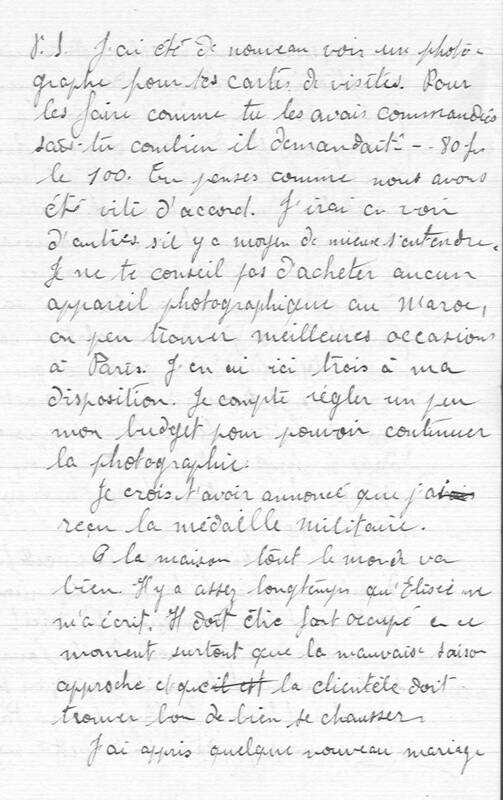 P.S. J'ai été de nouveau voir un photo-
graphe pour tes cartes de visites. Pour
les faire comme tu les avais commandées
sais-tu combien il demandait - - 80 frs
le 100. Tu penses comme nous avons
été vite d'accord. J'irai en voir
d'autres s'il y a moyen de mieux s'entendre.
Je ne te conseil pas d'acheter aucun
appareil photographique au Maroc,
on peu trouver meilleures occasions
à Paris. J'en ai ici trois à ma
disposition. Je compte régler un peu
mon budget pour pouvoir continuer
la photographie.
Je crois t'avoir annoncé que j'ai
reçu la médaille militaire.
A la maison tout le monde va
bien. Il y a assez longtemps qu'Elisée ne
m'a écrit. Il doit être fort occupé en ce
moment surtout que la mauvaise saison
approche et que il est la clientèle doit
trouver bon de bien se chausser.
J'ai appris quelque nouveau mariage